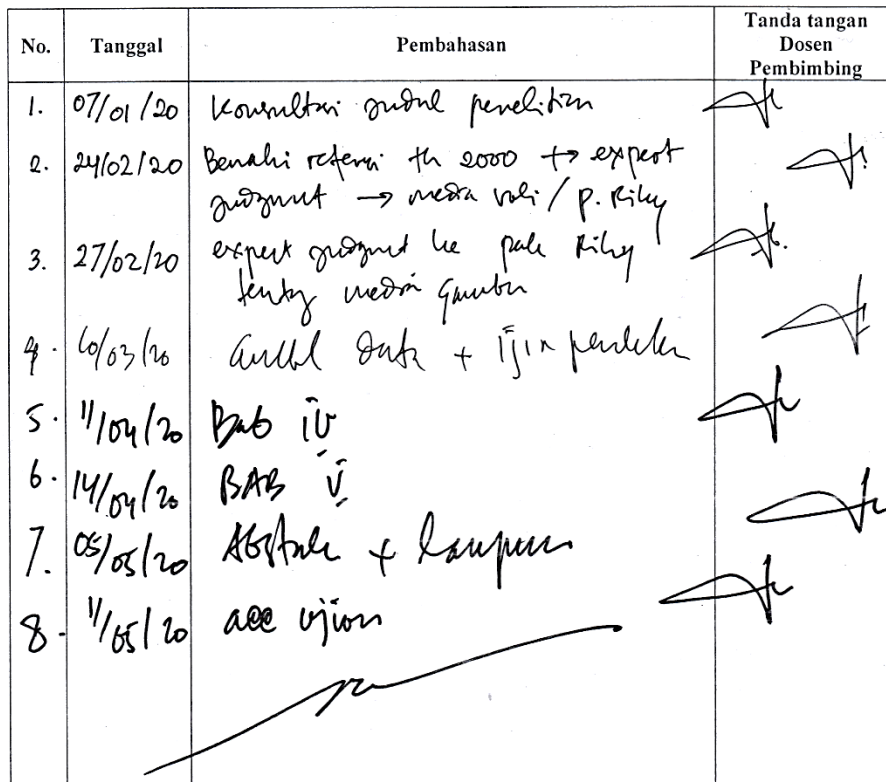 No. Tanggal Pembahasan Tanda tangan
Dosen
Pembimbing
1. 07/01/20 Konsultasi judul penelitian
2. 24/02/20 Benahi referensi th 2000 → expert
judgment → media voli / p. Riky
3. 27/02/20 expert judgment ke pak Riky
tentang media gambar
4. 10/03/20 ambil data + ijin
5. 11/04/20 Bab IV
6. 14/04/20 BAB V
7. 05/05/20 Abstrak + lampiran
8. 11/05/20 acc ujian